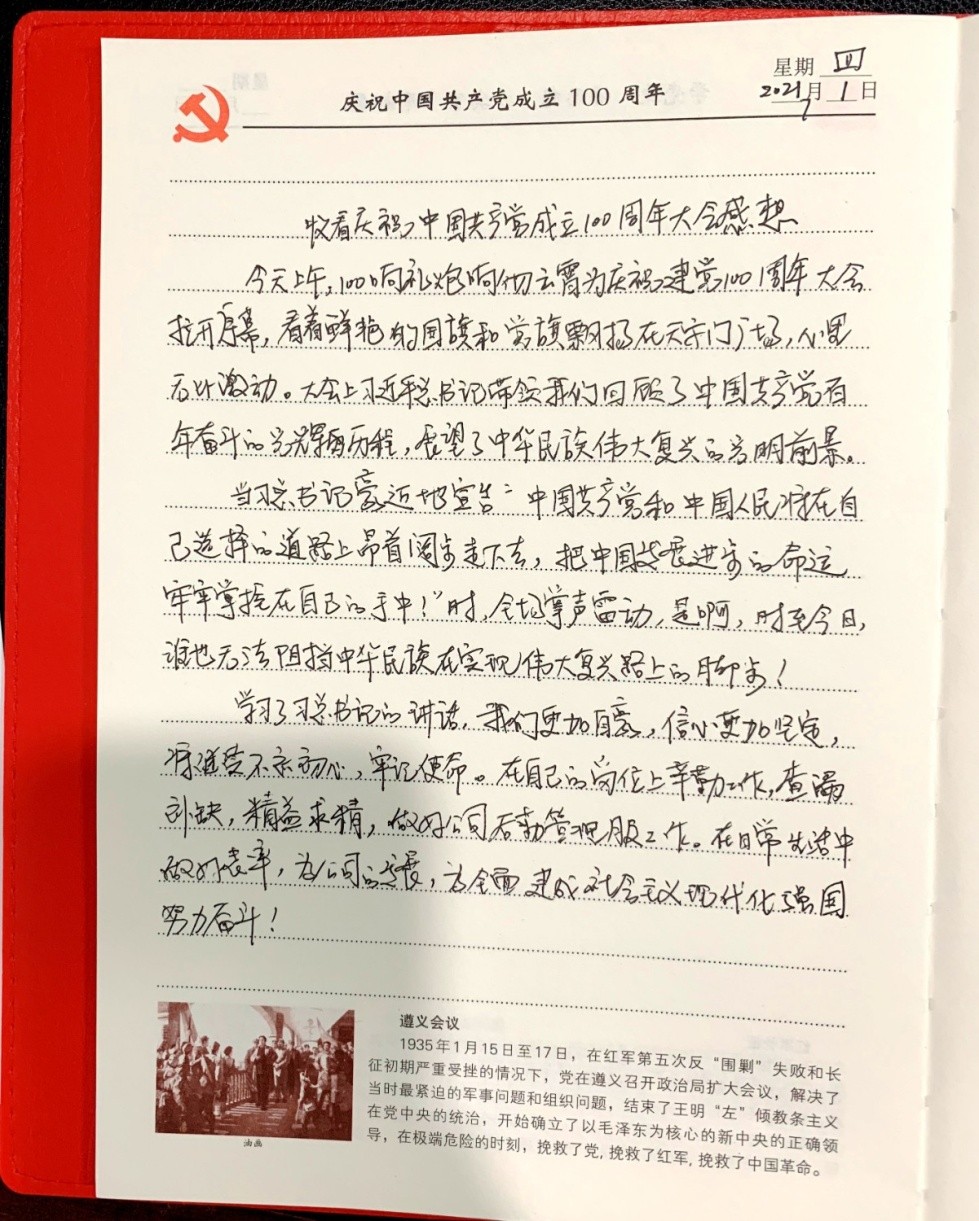 星期 四
庆祝中国共产党成立 100 周年
2021 7月 1 日
收看庆祝中国共产党成立100周年大会感想
今天上午，100响礼炮响彻云霄为庆祝建党100周年大会
拉开序幕，看着鲜艳的国旗和党旗飘扬在天安门广场，心里
无比激动。大会上习近平总书记带领我们回顾了中国共产党百
年奋斗的光辉历程，展望了中华民族伟大复兴的光明前景。
当习总书记豪迈地宣告“中国共产党和中国人民将在自
己选择的道路上昂首阔步走下去，把中国发展进步的命运
牢牢掌握在自己的手中！”时，全场掌声雷动，是啊，时至今日，
谁也无法阻挡中华民族在实现伟大复兴路上的脚步！
学习了习总书记的讲话，我们更加自豪，信心更加坚定，
将继续不忘初心，牢记使命。在自己的岗位上辛勤工作，查漏
补缺，精益求精，做好公司后勤管理服工作。在日常生活中
做好表率，为公司的发展，为全面建成社会主义现代化强国
努力奋斗！
遵义会议
1935年1月15日至17日，在红军第五次反“围剿”失败和长
征初期严重受挫的情况下，党在遵义召开政治局扩大会议，解决了
当时最紧迫的军事问题和组织问题，结束了王明“左”倾教条主义
在党中央的统治，开始确立了以毛泽东为核心的新中央的正确领
导，在极端危险的时刻，挽救了党，挽救了红军，挽救了中国革命。
油画